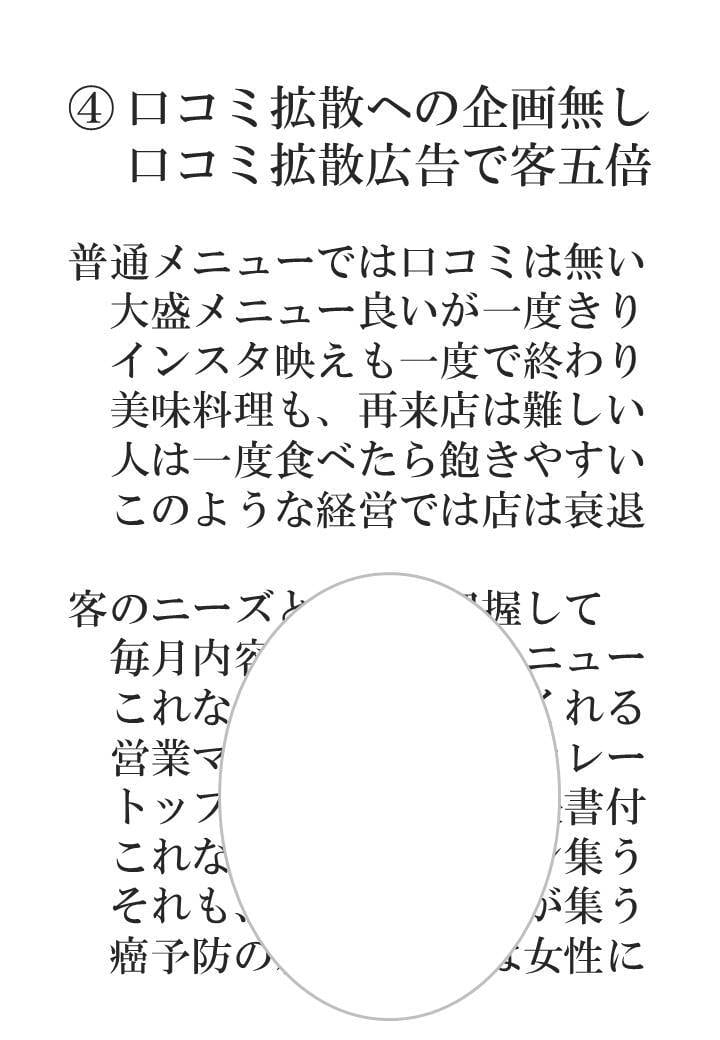 ④ 口コミ拡散への企画無し
口コミ拡散広告で客五倍
普通メニューでは口コミは無い
大盛メニュー良いが一度きり
インスタ映えも一度で終わり
美味料理も、再来店は難しい
人は一度食べたら飽きやすい
このような経営では店は衰退
客のニーズと 握して
毎月内容 ニュー
これな れる
営業マ レー
トップ 書付
これな 集う
それも、 が集う
癌予防の な女性に